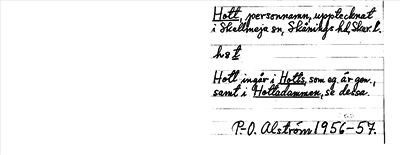 Hott, personnamn, upptecknat
i Skallmeja sn, Skånings hd, Skar. l.
hot
Hott ingår i Hotts, som eg. är gen.,
samt i Hottadammen, se dessa.
P.-O. Alström 1956-57.